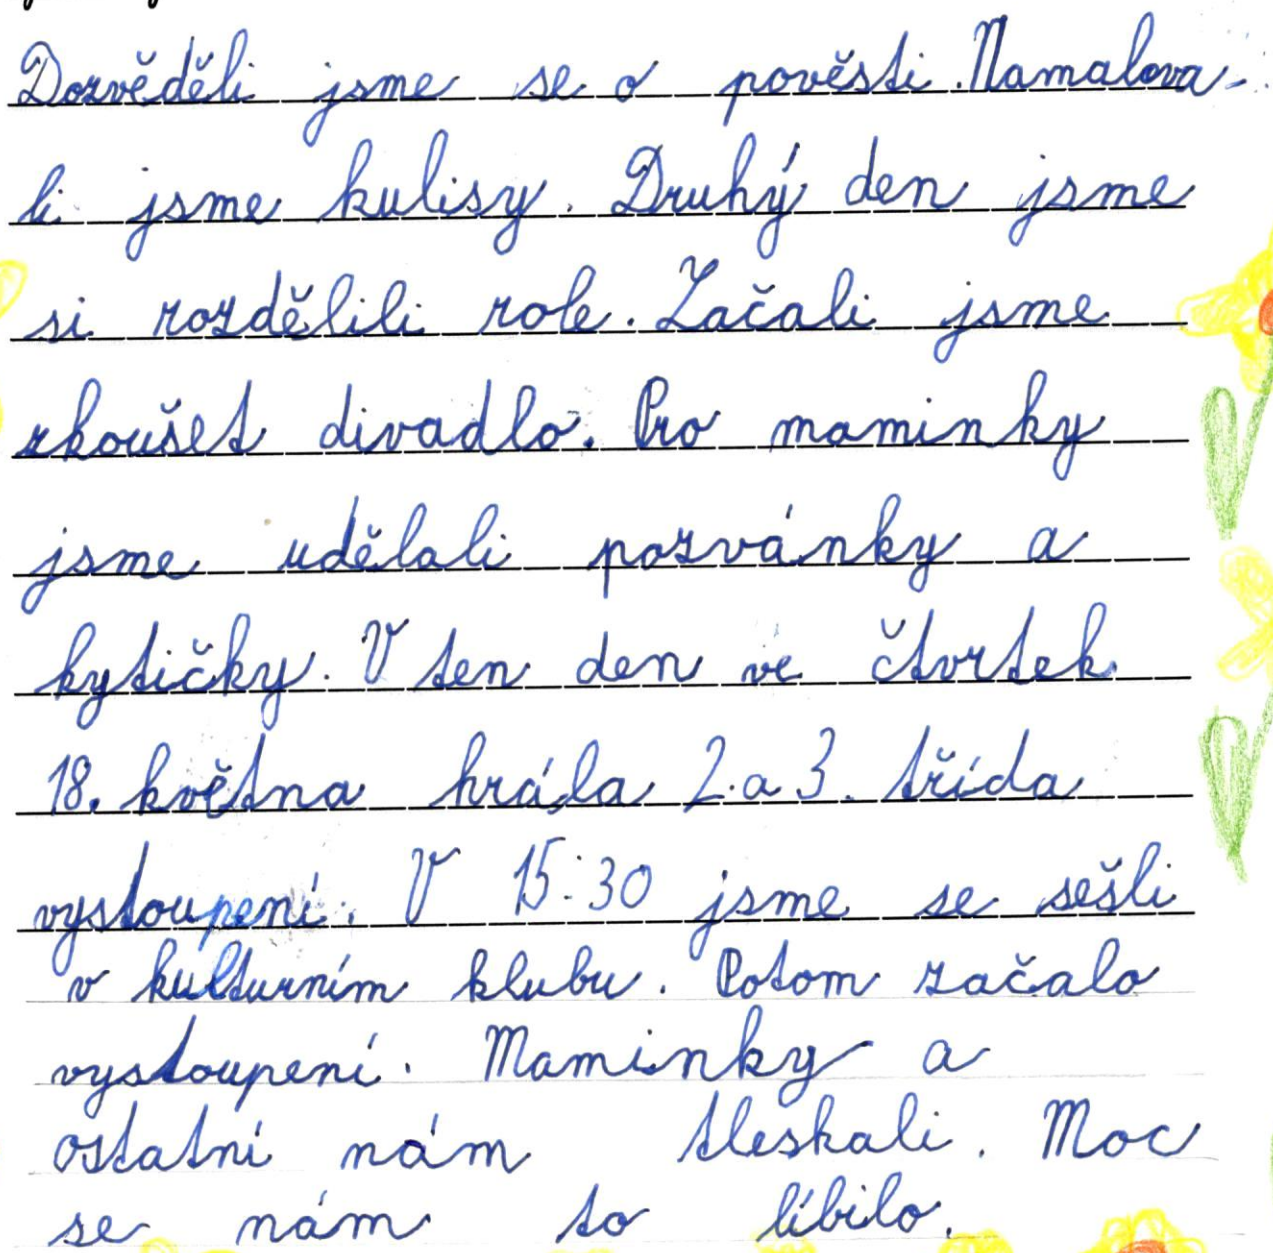 Dozvěděli jsme se o pověsti. Namalova-
li jsme kulisy. Druhý den jsme
si rozdělili role. Začali jsme
zkoušet divadlo. Pro maminky
jsme udělali pozvánky a
kytičky. V ten den ve čtvrtek
18. května hrála 2. a 3. třída
vystoupení. V 15:30 jsme se sešli
v kulturním klubu. Potom začalo
vystoupení. Maminky a
ostatní nám tleskali. Moc
se nám to líbilo.